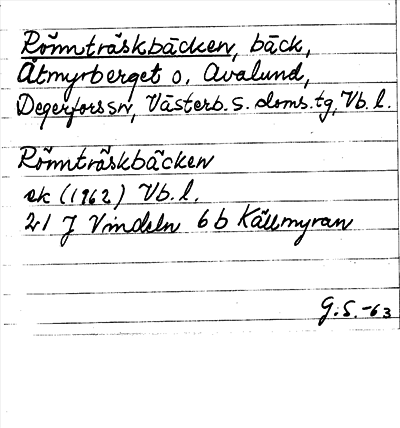 Rönnträskbäcken, bäck,
Åtmyrberget o. Avalund,
Degerfors sn, Västerb. s. doms. tg, Vb. l.
Rönnträskbäcken
ek (1962) Vb. l.
21 J Vindeln 6 b Källmyran
G. S. -63